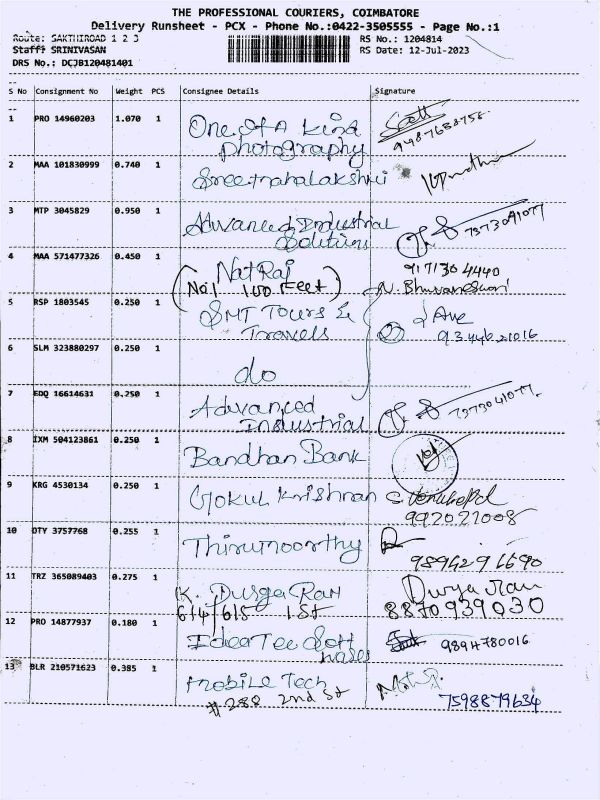 THE PROFESSIONAL COURIERS, COIMBATORE
Delivery Runsheet - PCX - Phone No.:0422-3505555 - Page No.:1
Route: SAKTHIROAD 1 2 3
RS No.: 1204814
Staff: SRINIVASAN
RS Date: 12-Jul-2023
DRS No.: DCJB120481401
S No Consignment No Weight PCS Consignee Details Signature
1 PRO 14960203 1.070 1 One of A kind
photography
2 MAA 101830999 0.740 1 Sreemahalakshmi
3 MTP 3045829 0.950 1 Advanced Industrial 7373041077
Solutions
4 MAA 571477326 0.450 1 NatRaj 9171304440
(No1 100 Feet) N. Bhuvaneswari
5 RSP 1803545 0.250 1 SMT Tours &
Travels
6 SLM 323880297 0.250 1 do
7 EDQ 16614631 0.250 1 Advanced 7373041077
Industrial
8 IXM 504123861 0.250 1 Bandhan Bank
9 KRG 4530134 0.250 1 Gokul Krishnan
992021008
10 OTY 3757768 0.255 1 Thirumoorthy
11 TRZ 365089403 0.275 1 K. Durga Ram Durga Ram
614/615 1 St 8870939030
12 PRO 14877937 0.180 1 Idea Tee Soft 9894780016
wares
13 BLR 210571623 0.385 1 Mobile Tech
# 288 2nd St 7598879634